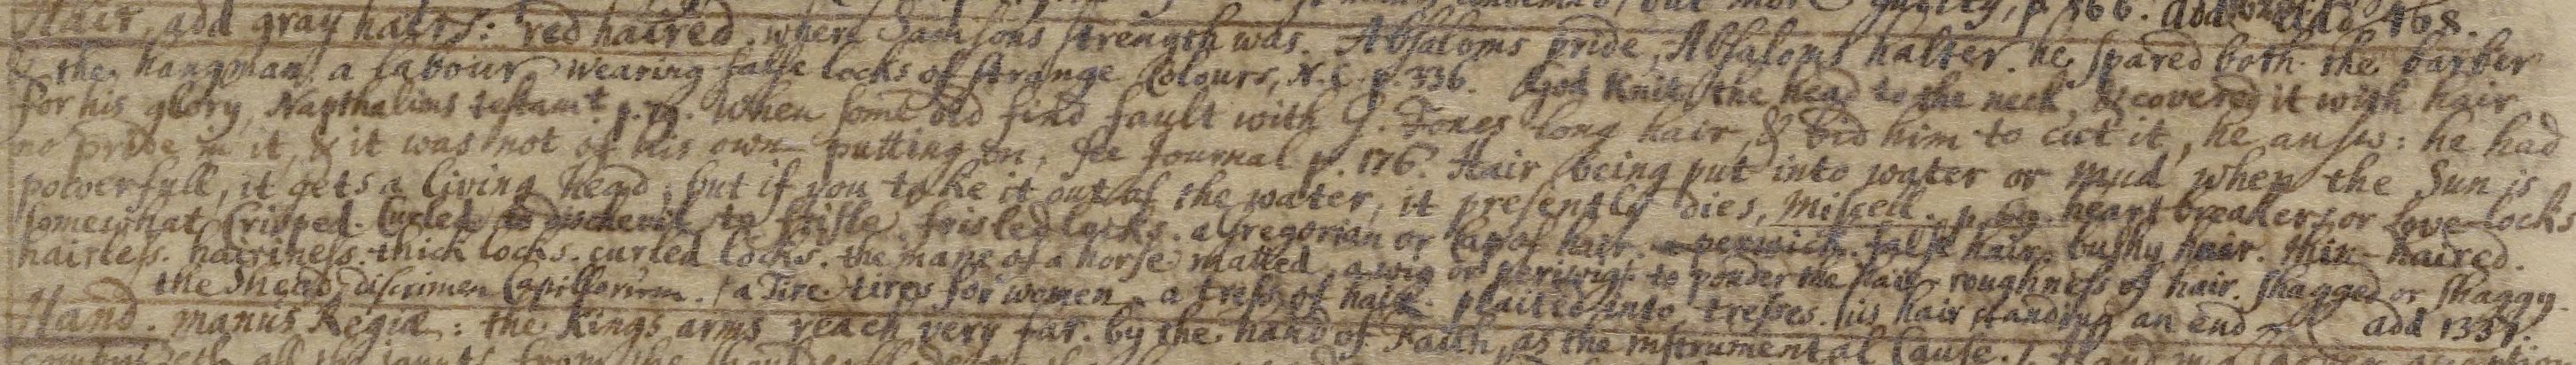 guilty, p. 366. add
Hair, add gray hairs: red haired. where Samsons strength was. Absaloms pride, Absaloms halter. he spared both the barber
& the hangman. a labour wearing false locks of strange Colours, N.C. p. 336. God Knits the head to the neck, & covered it with hair
for his glory, Napthalims testamt. p. When some did find fault with J. Fones long hair, & bid him to cut it, he answ: he had
no pride in it, & it was not of his own putting on, see Journal p. 176. Hair being put into water or mud when the Sun is
powerfull, it gets a living head, but if you take it out of the water, it presently dies, Miscell. p. heart-breakers or Love-locks
somewhat Crisped. Curled to frisle. frisled locks. a Gregorian or Cap of hair. a perwick. false hair. bushy hair. thin-haired.
hairless. hairiness. thick locks. curled locks. the mane of a horse matted. a wig or periwig. to pouder the hair roughness of hair. shagged or shaggy
the Shead, discrimen Capillorum. a Tire tires for women. a tress of hair. plaited into tresses. his hair standing an end add 1337.
Hand. manus Regiæ: the Kings arms reach very far. by the hand of Faith, as the instrumental Cause.